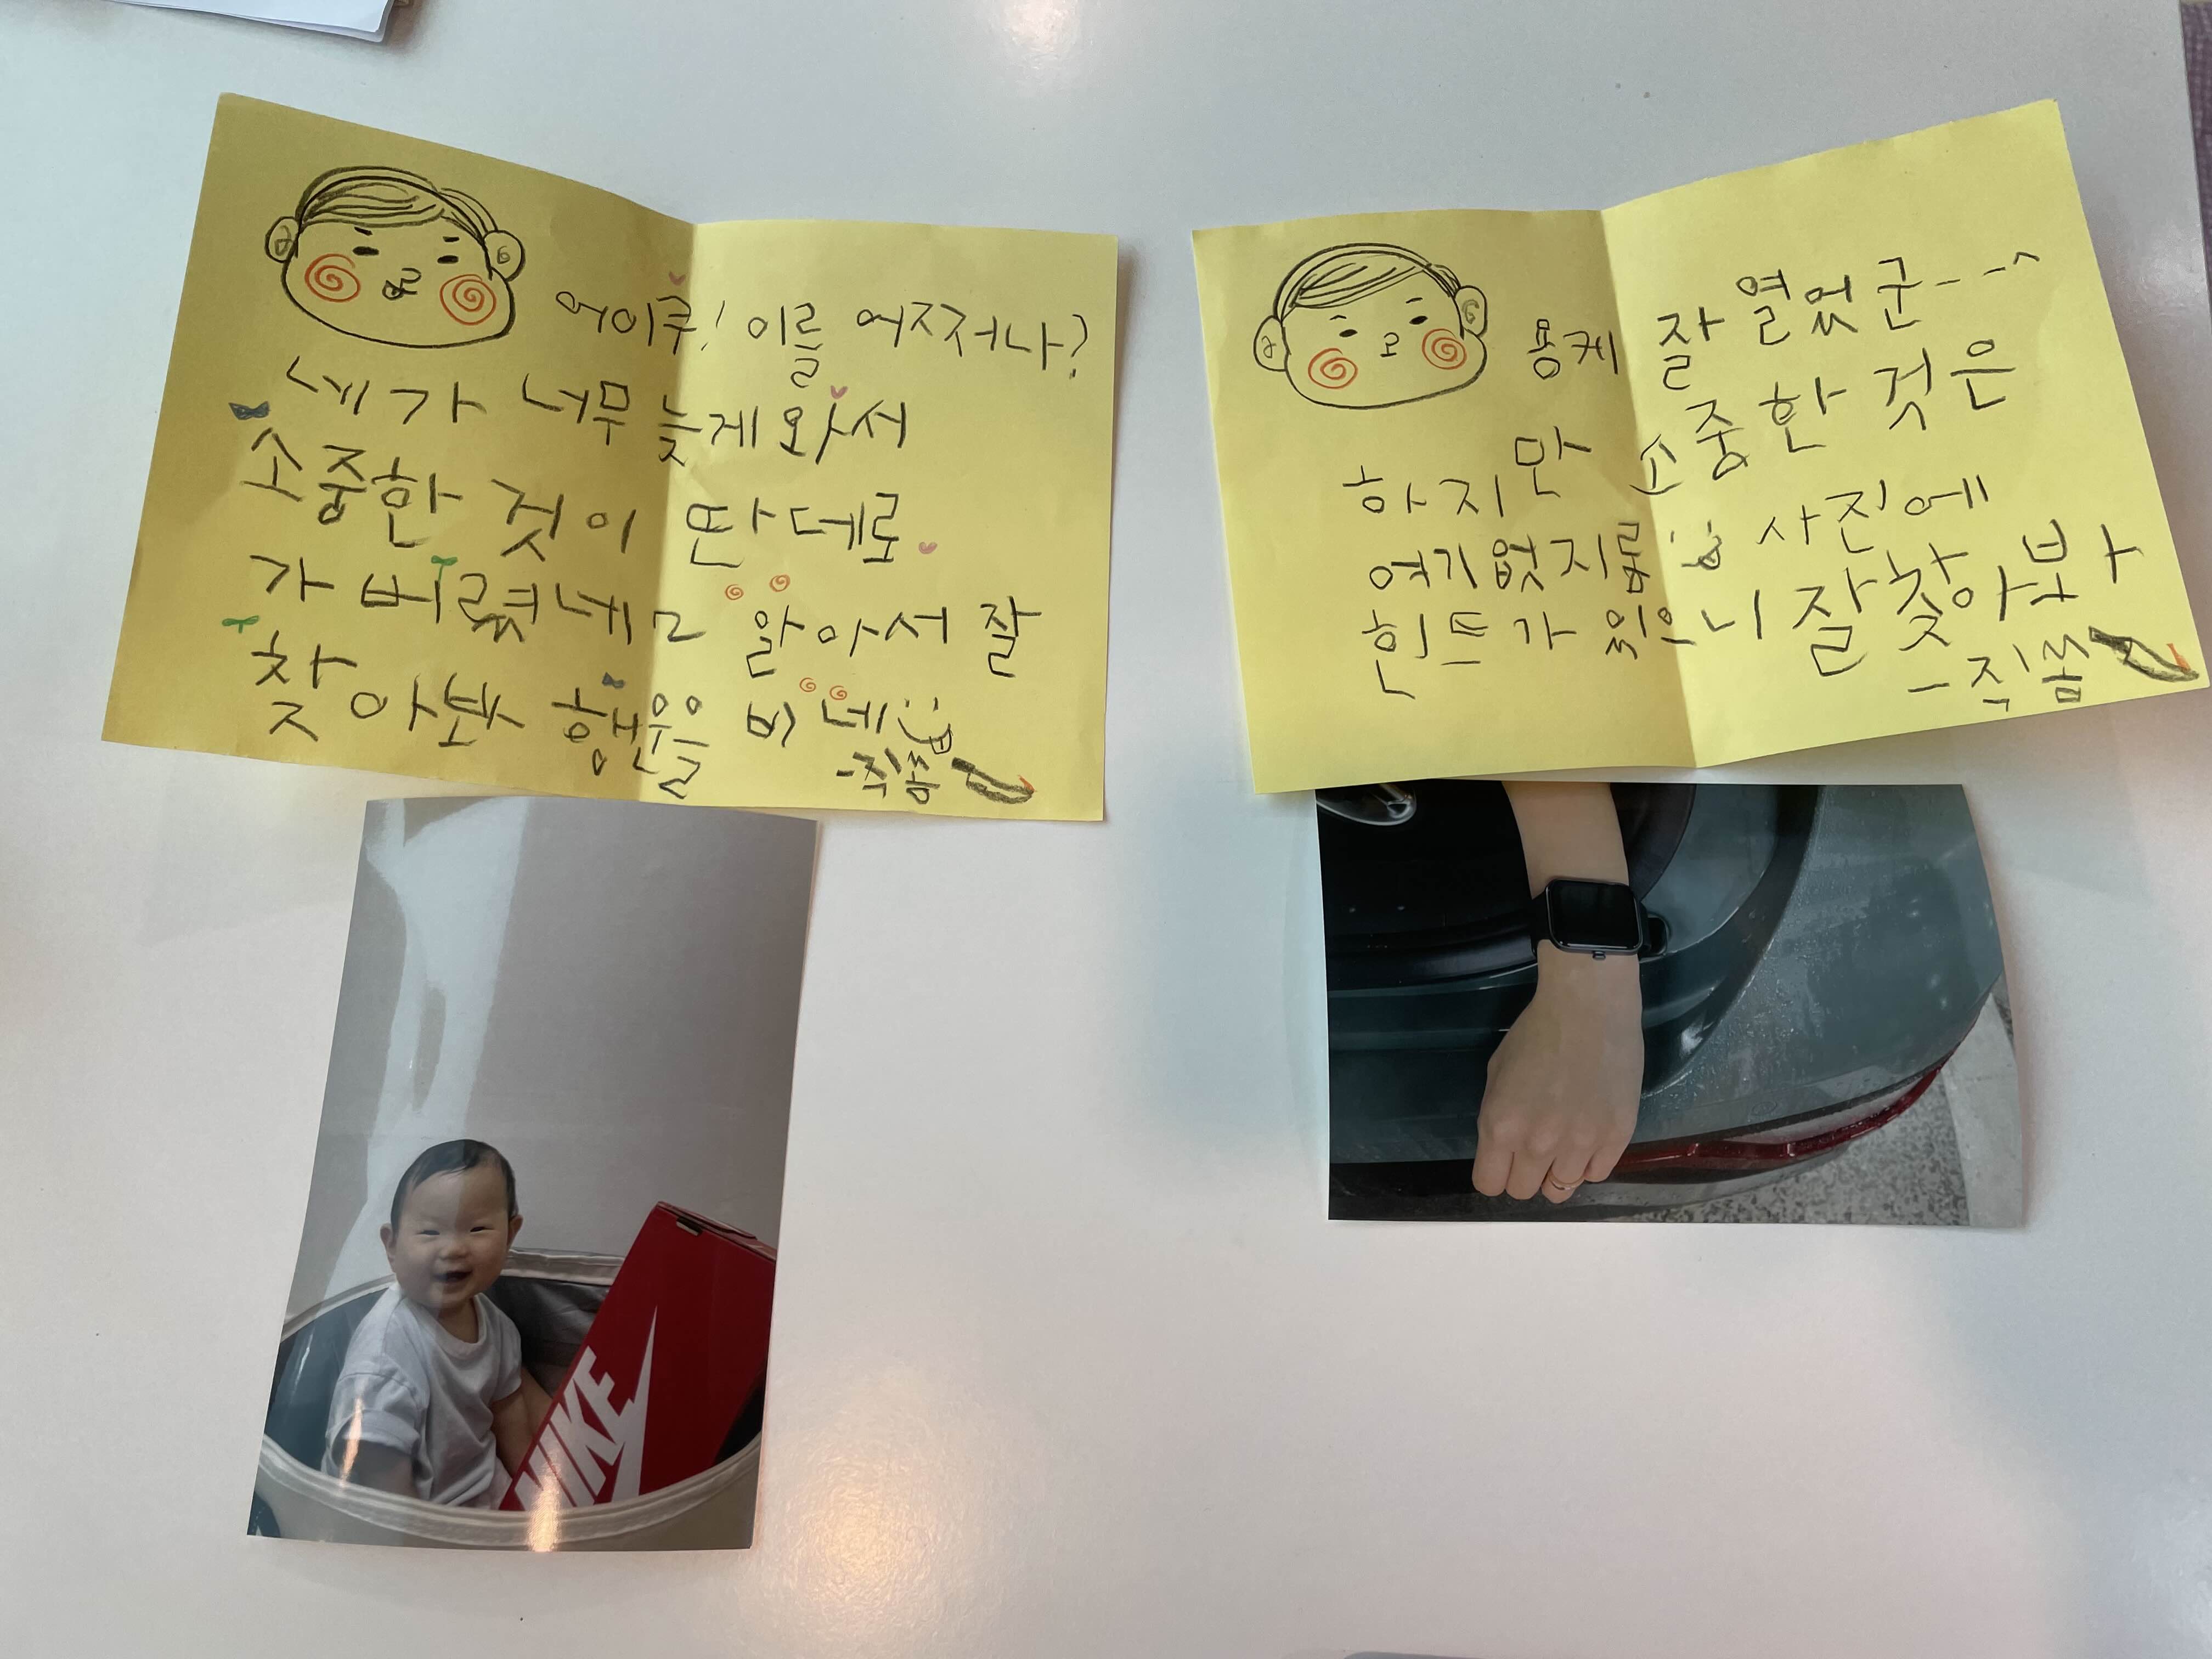 어이쿠! 이를 어쩌저나?
네가 너무 늦게 와서
소중한 것이 딴데로
가 버렸네ㅋ 알아서 잘
찾아봐 행운을 비네
-직쏨
용케 잘 열었군--^
하지만 소중한 것은
여기 없지롱 사진에
힌트가 있으니 잘 찾아보아
-직쏨
NIKE